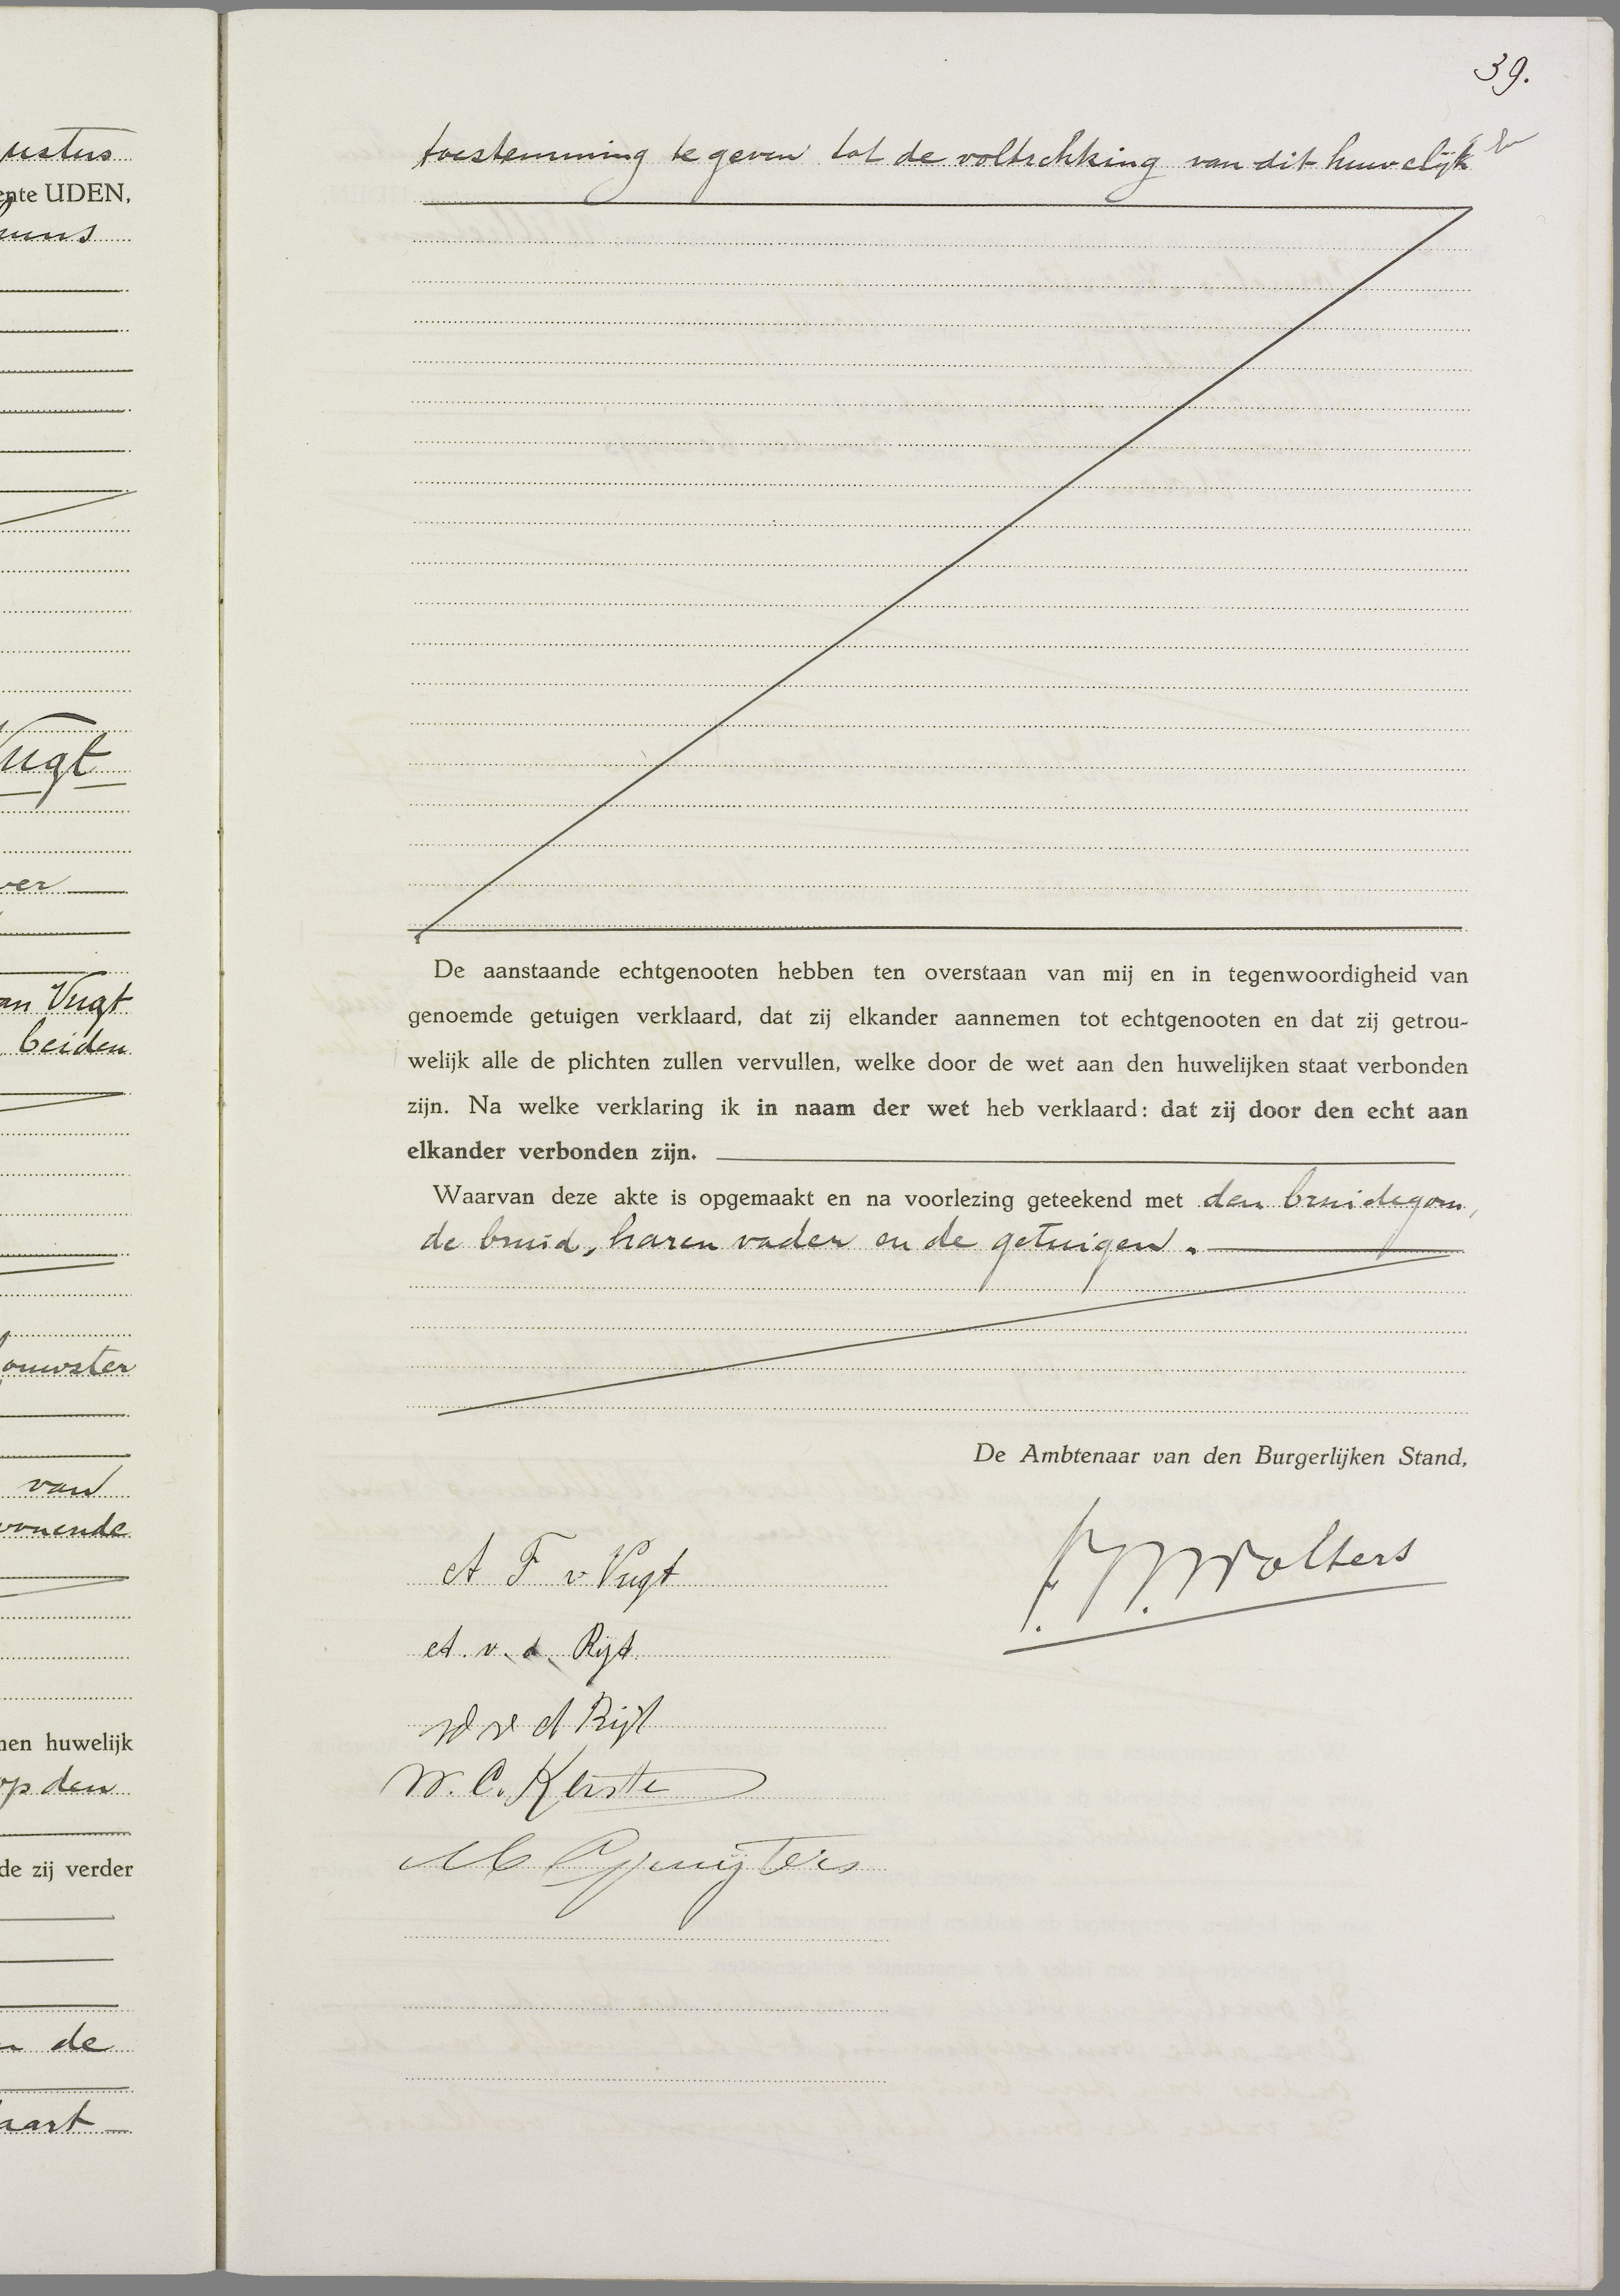 ustus
ente UDEN,
Vugt
ver
an Vugt
beiden
ouwster
van
wonende
nen huwelijk
op den
de zij verder
de
aart
39.
toestemming te geven tot de voltrekking van dit huwelijk
De aanstaande echtgenooten hebben ten overstaan van mij en in tegenwoordigheid van
genoemde getuigen verklaard, dat zij elkander aannemen tot echtgenooten en dat zij getrou-
welijk alle de plichten zullen vervullen, welke door de wet aan den huwelijken staat verbonden
zijn. Na welke verklaring ik in naam der wet heb verklaard: dat zij door den echt aan
elkander verbonden zijn.
Waarvan deze akte is opgemaakt en na voorlezing geteekend met den bruidegom,
de bruid, haren vader en de getuigen.
De Ambtenaar van den Burgerlijken Stand,
Wolters
A F v Vugt
A. v. d. Rijt
W v d Rijt
W. C. Kerste